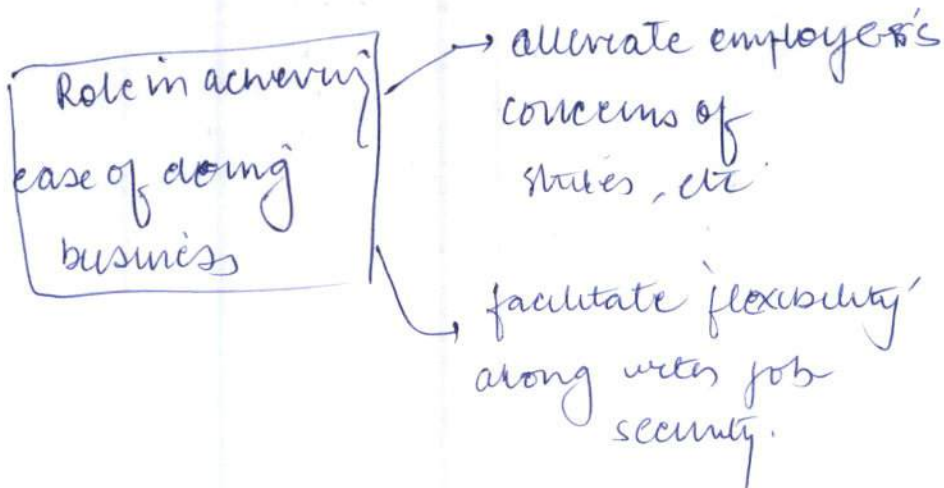 Role in achieving
ease of doing
business
alleviate employer's
concerns of
strikes, etc
facilitate 'flexibility'
along with job
security.